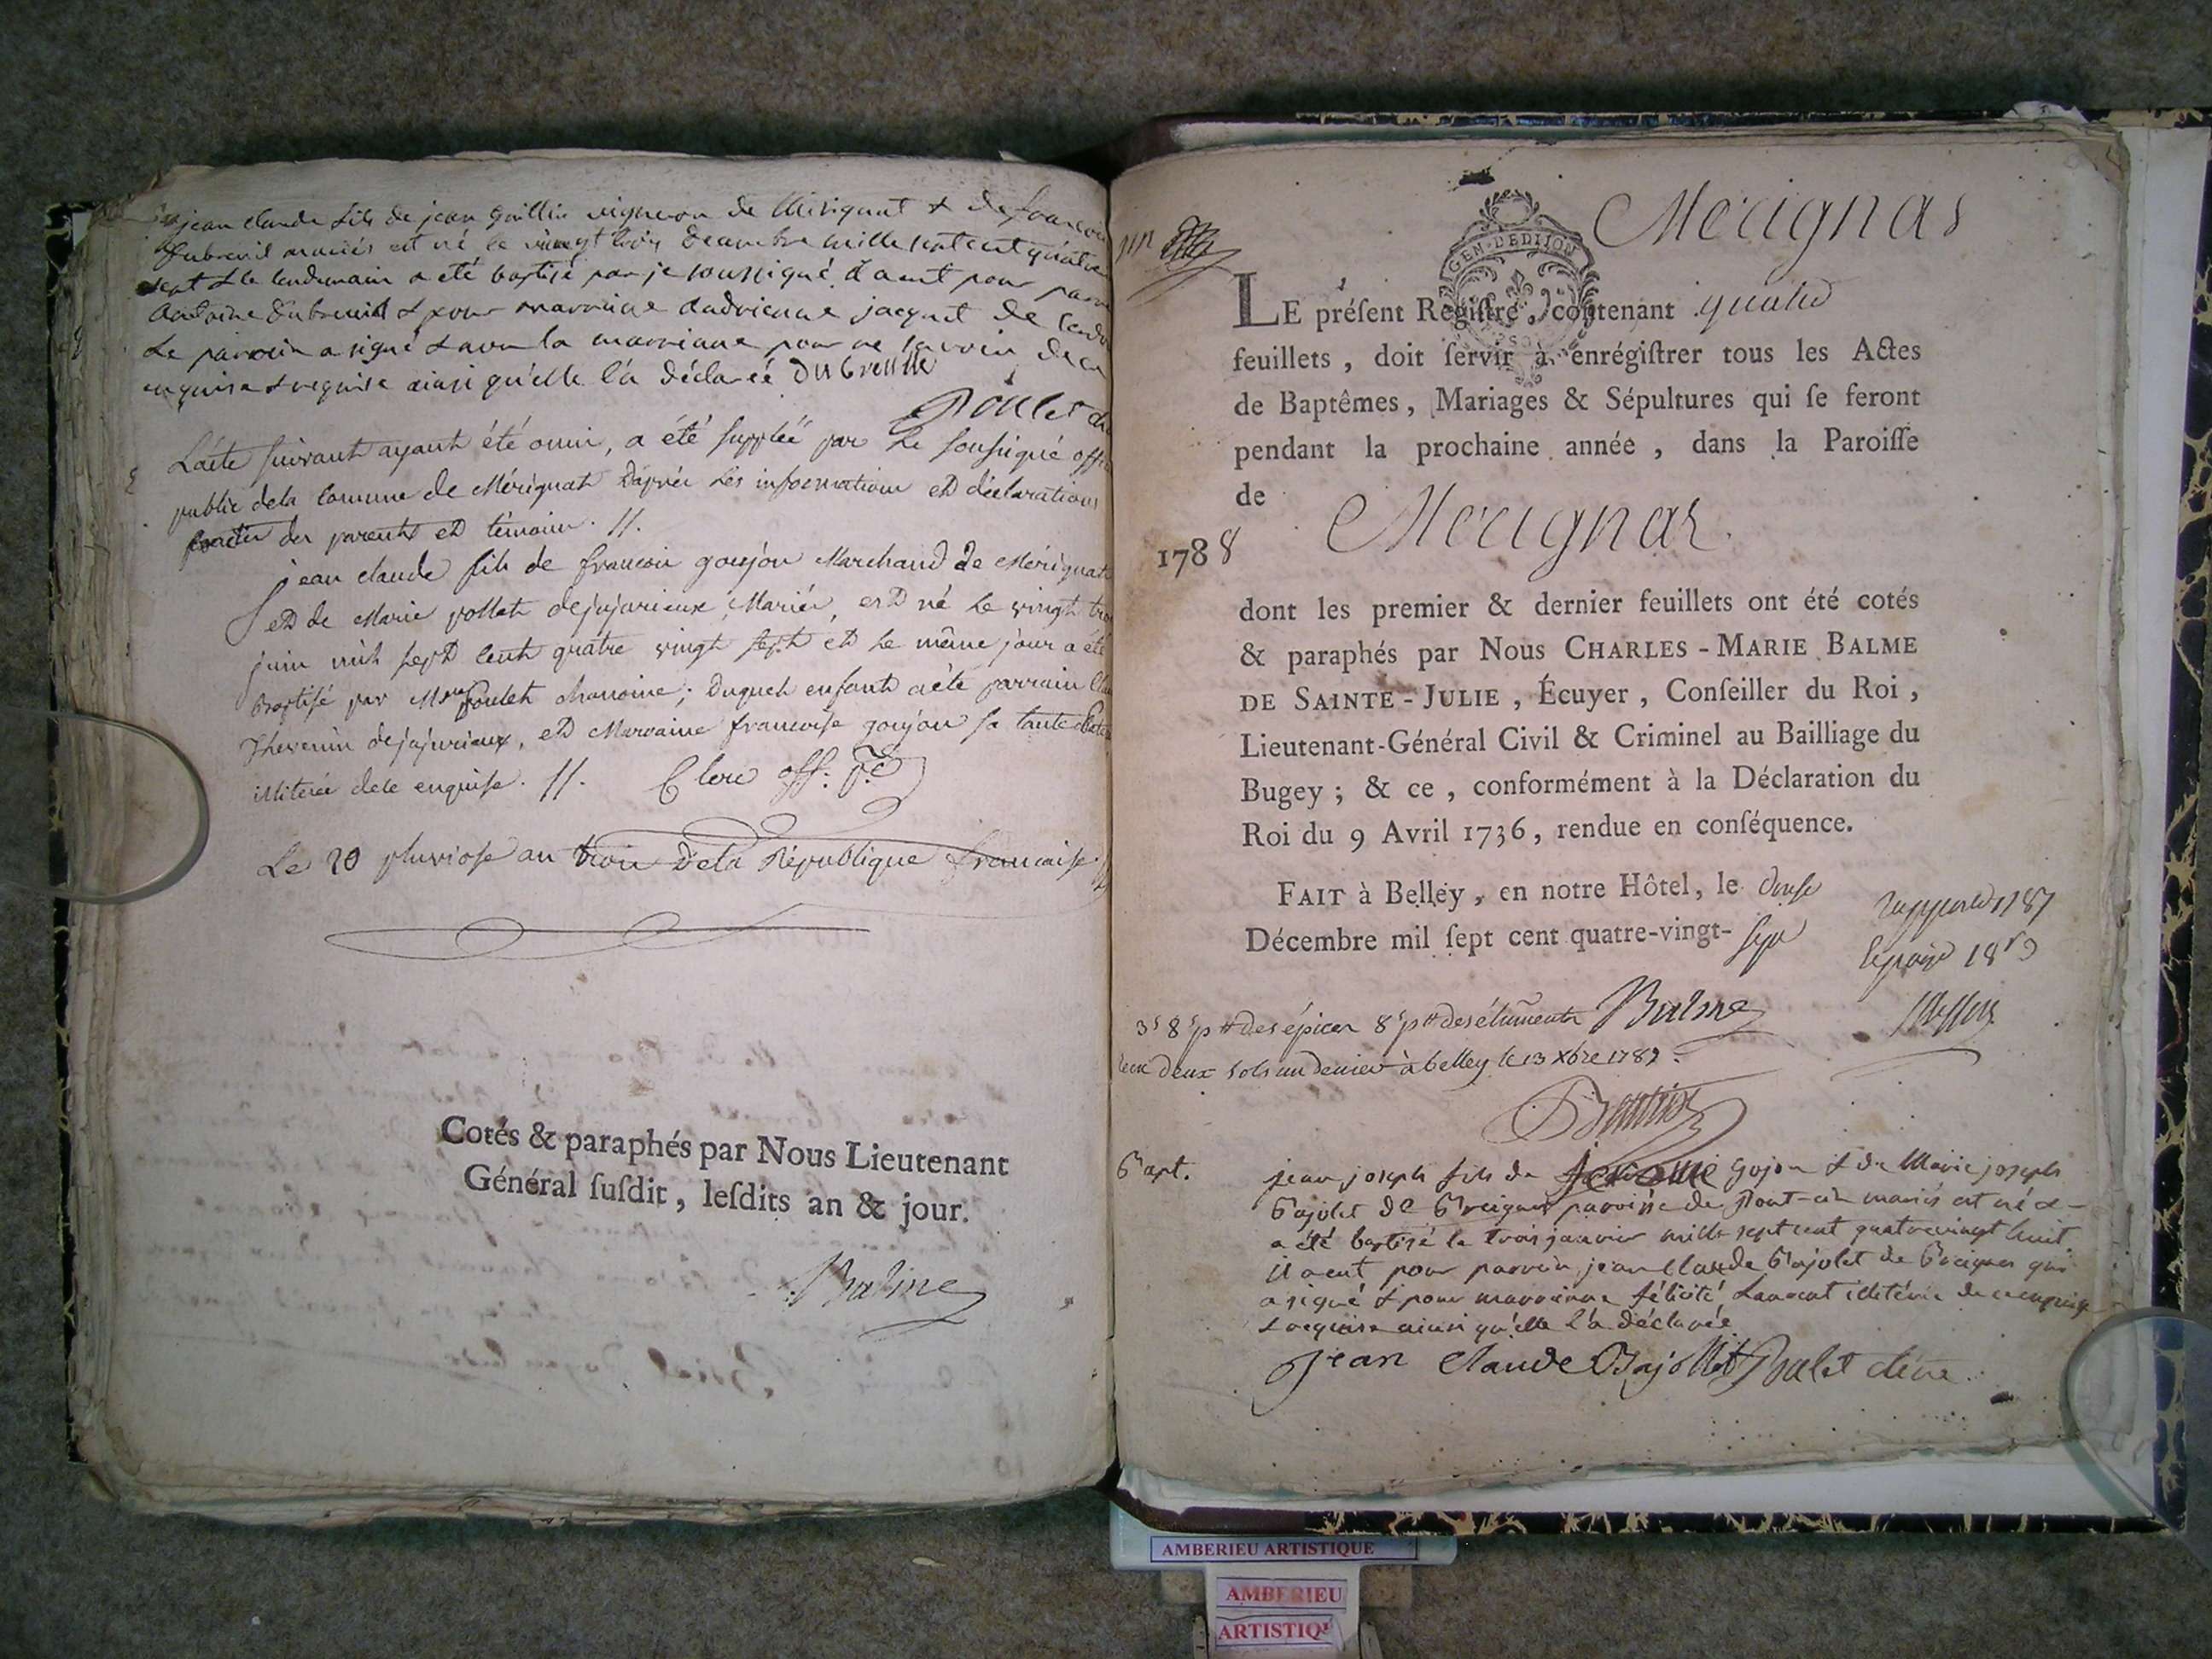 jean claude fils de jean Guillin vigneron de Merignat & de francoi
dubreuil mariés est né le vingt trois decembre mille sept cent quatre
sept & le lendemain a été baptisé par je soussigné il a eut pour
antoine dubreuil & pour marraine andrienne jacquet de
Le parrein a signé & non la marriane pour ne savoir de ce
enquise & requise ainsi qu'elle l'a déclarée Dubreuille
Poulet
L'acte suivant ayant été omis, a été supplée par Le soussigné off
public dela Comune de Mérignat D'après Les informations et déclarations
des parents et témoins. //.
jean claude fils de francois goujon Marchand de Mérignat
et de Marie pollet dejujurieux, Mariés, est né Le vingt
juin mil sept cent quatre vingt sept et le même jour a été
Baptisé par Mre poulet chanoine; Duquel enfant a été parrain
Thevenin dejujurieux, et Marraine francoise goujon sa tante
illiterée dece enquise. //. Clerc off: p.c
Le 20 pluviose an trois Dela République francaise
Cotés & paraphés par Nous Lieutenant
Général ſuſdit, leſdits an & jour.
Balme
Merignas
GEN·DE DIJON
LE préſent Regiſtre, contenant quatre
feuillets, doit ſervir à enrégiſtrer tous les Actes
de Baptêmes, Mariages & Sépultures qui ſe feront
pendant la prochaine année, dans la Paroiſſe
de
Merignas.
1788
dont les premier & dernier feuillets ont été cotés
& paraphés par Nous CHARLES-MARIE BALME
DE SAINTE-JULIE, Écuyer, Conſeiller du Roi,
Lieutenant-Général Civil & Criminel au Bailliage du
Bugey; & ce, conformément à la Déclaration du
Roi du 9 Avril 1736, rendue en conſéquence.
FAIT à Belley, en notre Hôtel, le douse
Décembre mil ſept cent quatre-vingt- sept
1787
Balme
deux sols un denier à belley le 13 Xbre 1787
Bapt.
jean joseph fils de Jerome Gojon & de Marie joseph
Bajolet de paroisse de Pont-ain mariés est né &
a été baptisé le trois janvier mille sept cent quatrevingt huit
il a eut pour parrein jean Claude Bajolet de qui
a signé & pour marrienne félicité Laurent illitérée de ce enquise
& requise ainsi qu'elle l'a déclarée
Jean Claude Bajollet Poulet
AMBERIEU ARTISTIQUE
AMBERIEU
ARTISTIQ